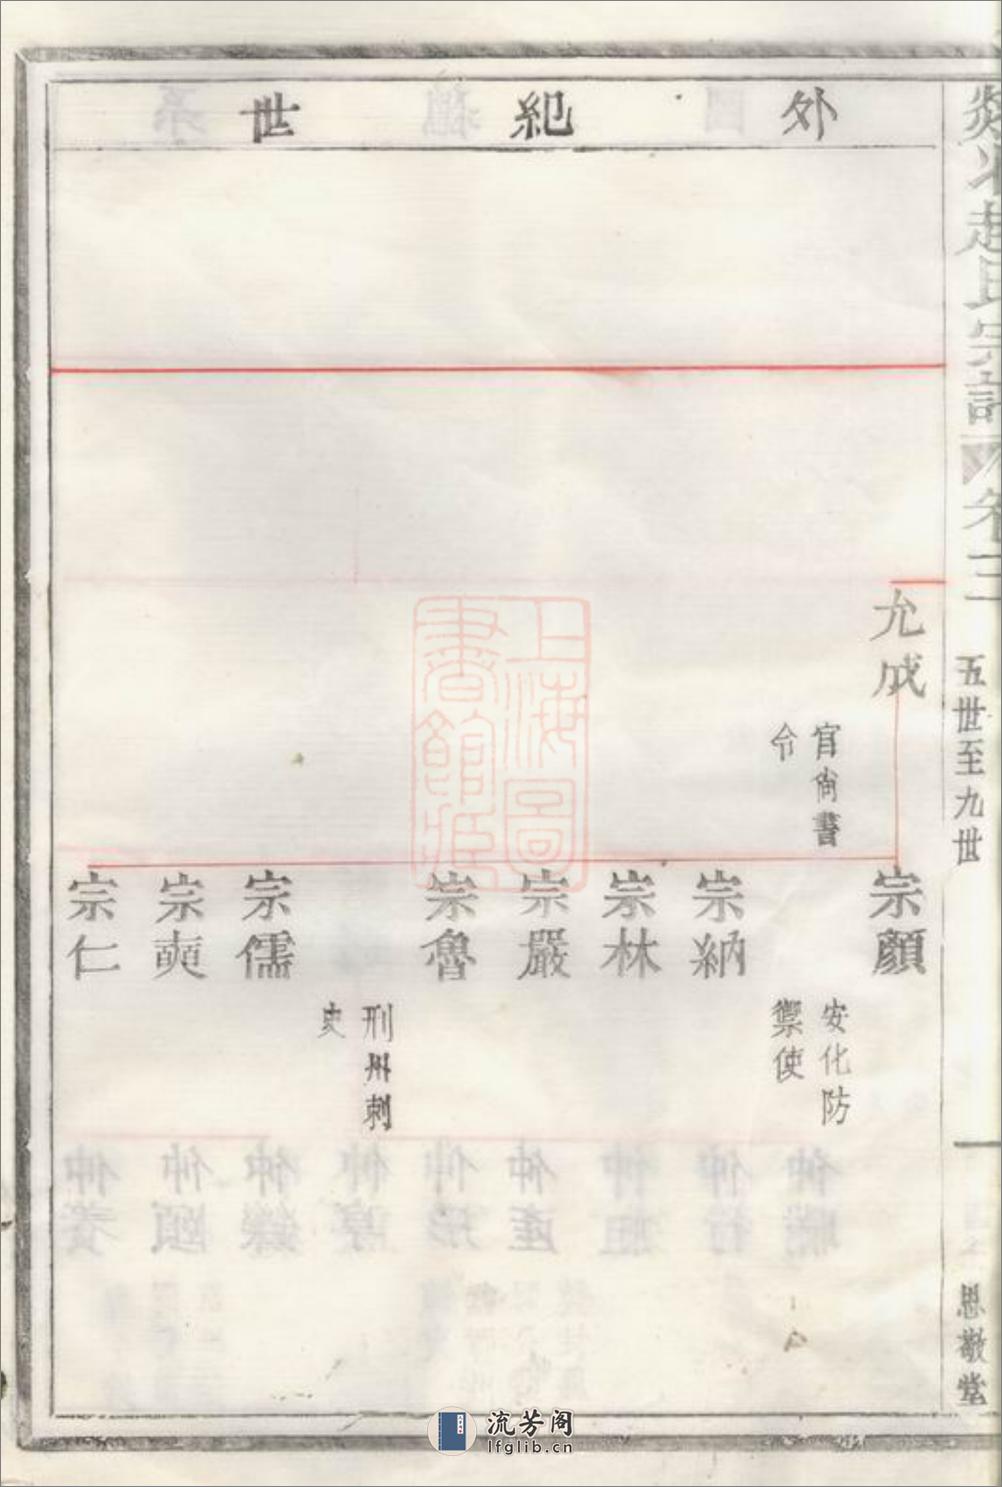 外紀世
趙氏宗譜 卷三 五世至九世 思敬堂
允成
官尚書
令
宗顏
安化防
禦使
宗納
宗林
宗嚴
宗魯
刑州刺
史
宗儒
宗奭
宗仁
上海圖
書館藏
流芳阁
lfglib.cn